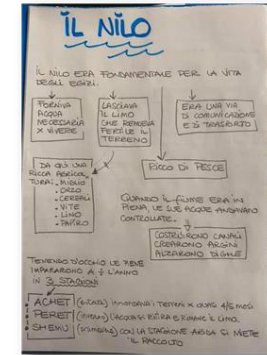 IL NILO
IL NILO ERA FONDAMENTALE PER LA VITA
DEGLI EGIZI.
FORNIVA
ACQUA
NECESSARIA
X VIVERE
LASCIAVA
IL LIMO
CHE RENDEVA
FERTILE IL
TERRENO
ERA UNA VIA
DI COMUNICAZIONE
E DI TRASPORTO
DA CUI UNA
RICCA AGRICOL
TURA:
• MIGLIO
• ORZO
• CEREALI
• VITE
• LINO
• PAPIRO
RICCO DI PESCE
QUANDO IL FIUME ERA IN
PIENA, LE SUE ACQUE ANDAVANO
CONTROLLATE.
COSTRUIRONO CANALI
CREARONO ARGINI
ALZARONO DIGHE
TENENDO D'OCCHIO LE PIENE
IMPARARONO A L'ANNO
IN 3 STAGIONI
ACHET INONDAVA I TERRENI X QUASI 4/5 MESI.
PERET (INVERNO) L'ACQUA SI RITIRA E RIMANE IL LIMO.
SHEMU CON LA STAGIONE ARIDA SI MIETE
IL RACCOLTO